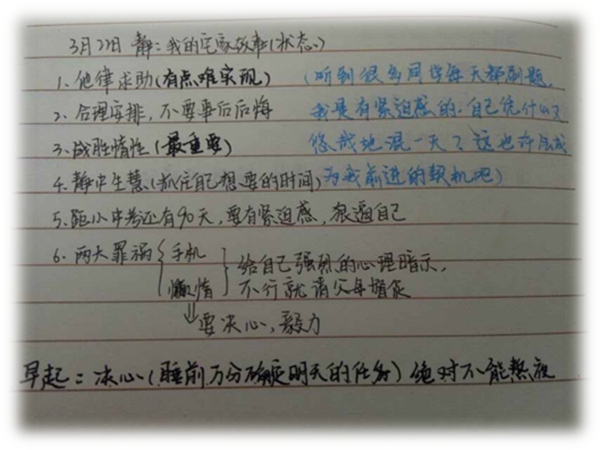 3月22日 静：我的宅家故事(状态)
1、他律求助(有点难实现) (听到很多同学每天都刷题,
2、合理安排, 不要事后后悔 我是有紧迫感的.自己凭什么
3、战胜惰性(最重要) 悠哉地混一天？这也许会成
4、静中生慧(抓住自己想要的时间) 为我前进的契机吧)
5、距小中考还有90天,要有紧迫感,狠逼自己
6、两大罪祸 { 手机
懒惰 } 给自己强烈的心理暗示,
不行就请父母督促
⇓
要决心,毅力
早起：决心(睡前万分确定明天的任务) 绝对不能熬夜